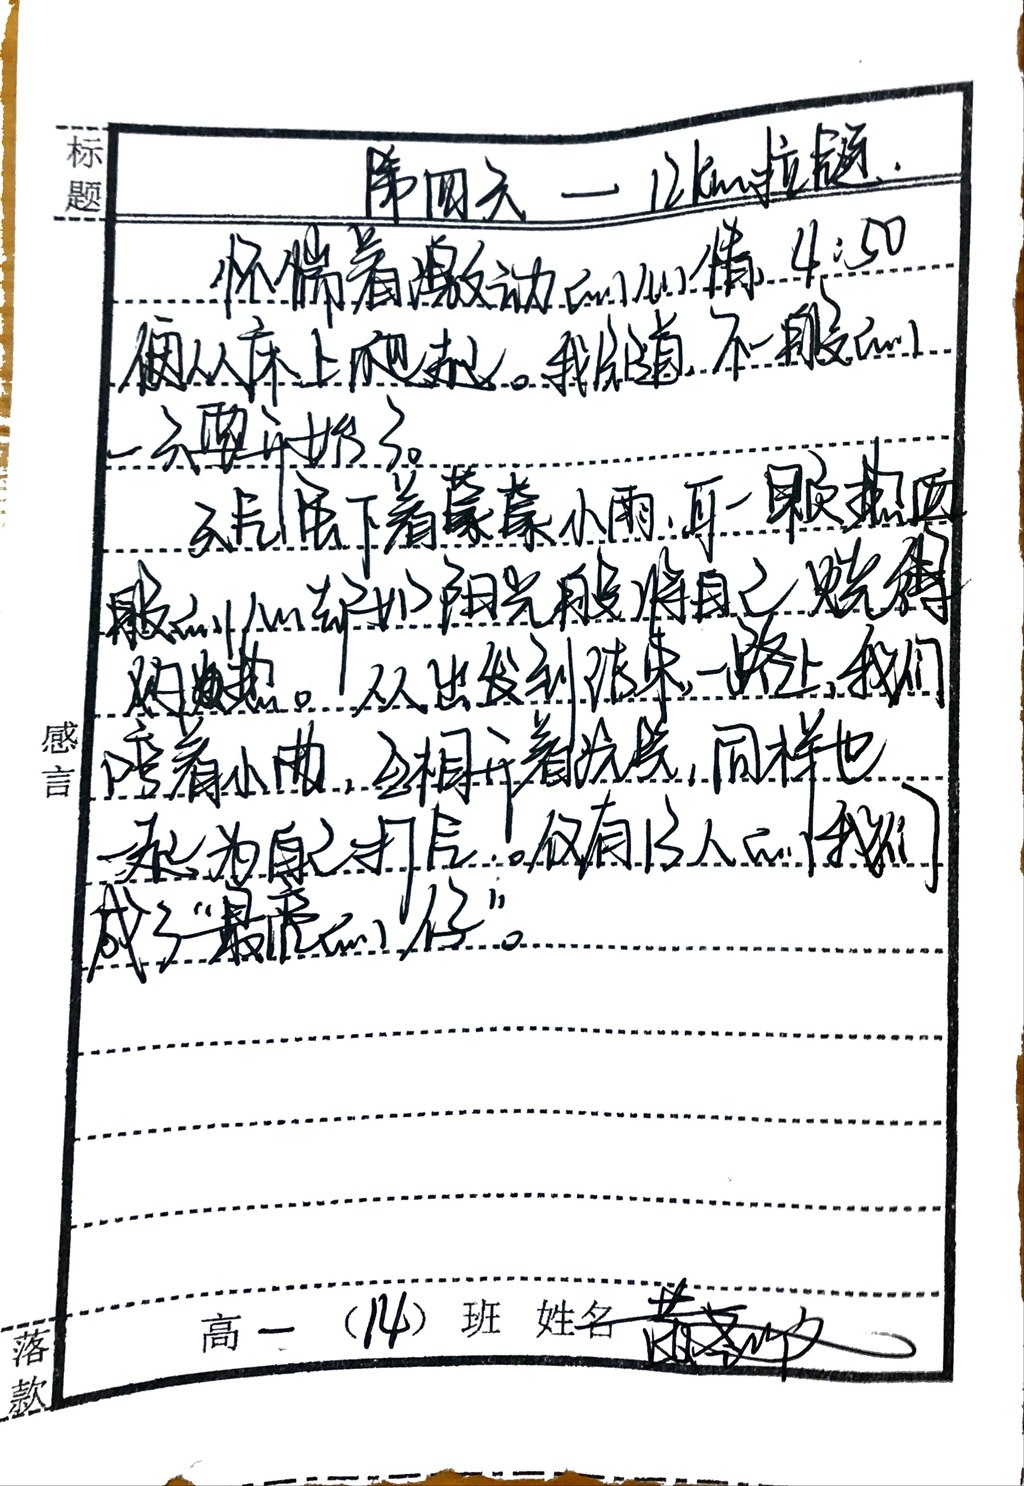 标题
第四天 — 12km拉练.
怀惴着激动的心情, 4:50
便从床上爬起。我知道,不一般的
一天要开始了。
天虽下着蒙蒙小雨,可一颗热血
般的心却如阳光般将自己照得
灼热。从出发到结束,一路上,我们
哼着小曲,互相开着玩笑,同样也
为自己打气。仅有13人的我们
成了“最亮的仔”。
感言
高一(14)班 姓名
落款